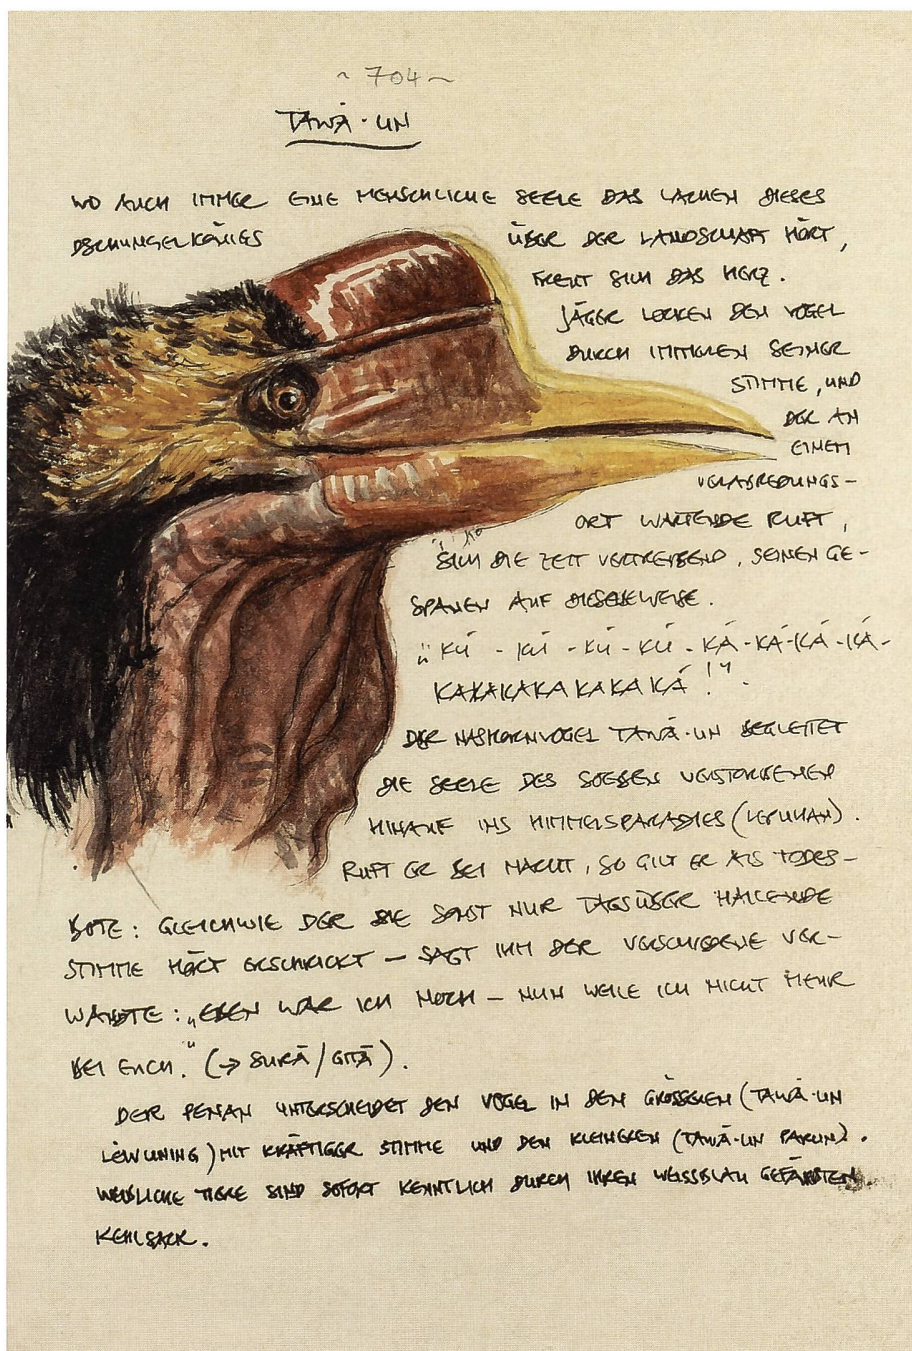 ~ 704 ~
TAWÁ·UN
WO AUCH IMMER EINE MENSCHLICHE SEELE DAS LACHEN DIESES
DSCHUNGELKÖNIGS ÜBER DER LANDSCHAFT HÖRT,
FREUT SICH DAS HERZ.
JÄGER LOCKEN DEN VOGEL
DURCH IMITIEREN SEINER
STIMME, UND
DER AN
EINEM
VERABREDUNGS-
ORT WARTENDE RUFT,
SICH DIE ZEIT VERTREIBEND, SEINEN GE-
SPANEN AUF DIESELBE WEISE.
„KÚ - KÚ - KÚ - KÚ - KÁ - KÁ-KÁ-KÁ-
KAKAKAKA KAKA KÁ!"
DER NASHORNVOGEL TAWÁ·UN BEGLEITET
DIE SEELE DES SOEBEN VERSTORBENEN
HINAUF INS HIMMELSPARADIES
RUFT ER BEI NACHT, SO GILT ER ALS TODES-
BOTE: GLEICHWIE DER DIE SONST NUR TAGSÜBER HALLENDE
STIMME HÖRT ERSCHRICKT – SAGT IHM DER VERSCHIEDENE VER-
WANDTE: „EBEN WAR ICH NOCH – NUN WEILE ICH NICHT MEHR
BEI EUCH." (→ SUKĀ / GITĀ).
DER PENAN UNTERSCHEIDET DEN VOGEL IN DEN GRÖSSEREN (TAWÁ·UN
LEWUNING) MIT KRÄFTIGER STIMME UND DEN KLEINEREN (TAWÁ·UN PAKUN).
WEIBLICHE TIERE SIND SOFORT KENNTLICH DURCH IHREN WEISSBLAU GEFÄRBTEN
KEHLSACK.